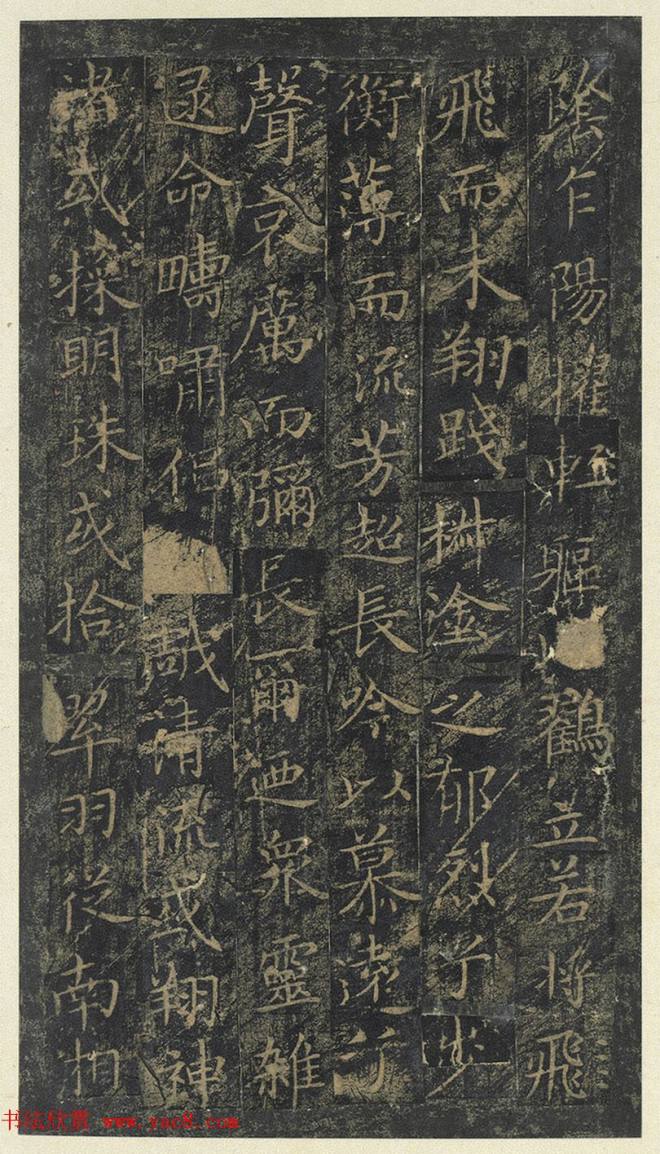 陰乍陽擢輕軀以鶴立若將飛
飛而未翔踐椒塗之郁烈予步
衡薄而流芳超長吟以慕遠兮
聲哀厲而彌長爾迺衆靈雜
遝命疇嘯侶戲清流或翔神
渚或採明珠或拾翠羽從南湘
书法欣赏 www.yac8.com